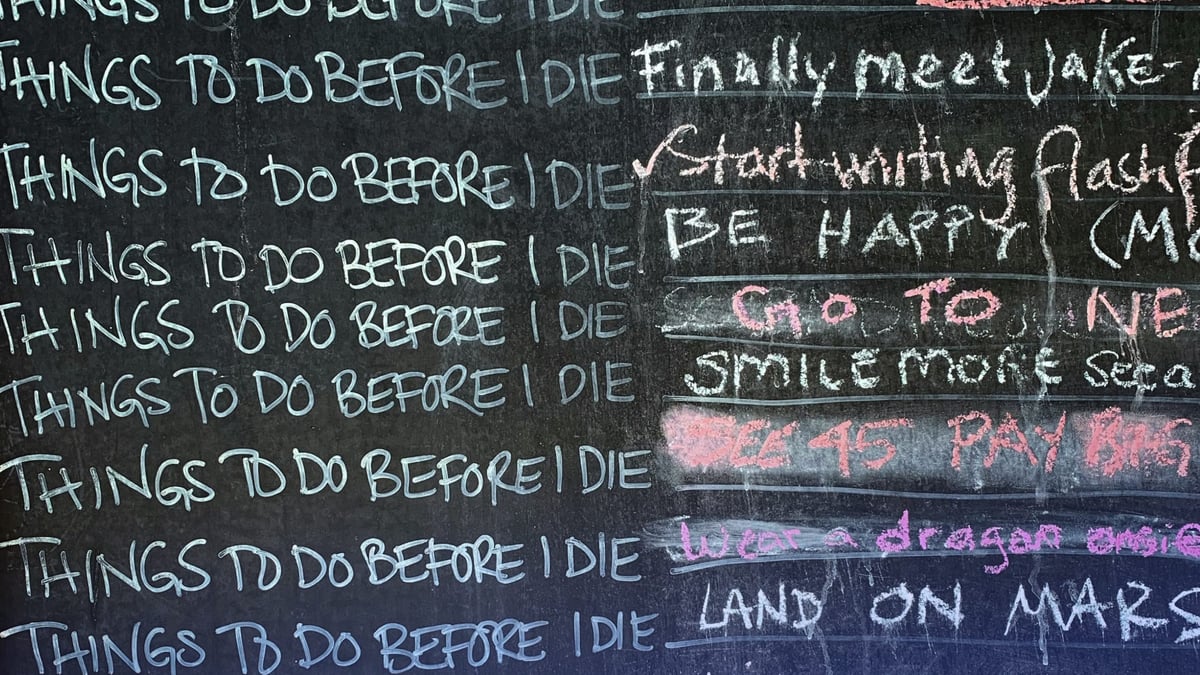 THINGS TO DO BEFORE I DIE
THINGS TO DO BEFORE I DIE Finally meet JAKE-
THINGS TO DO BEFORE I DIE ✓Start writing flash
THINGS TO DO BEFORE I DIE BE HAPPY (M
THINGS TO DO BEFORE I DIE GO TO NE
THINGS TO DO BEFORE I DIE SMILE MORE Set a
THINGS TO DO BEFORE I DIE SEE 45 PAY BIG
THINGS TO DO BEFORE I DIE Wear a dragon onsie
THINGS TO DO BEFORE I DIE LAND ON MARS